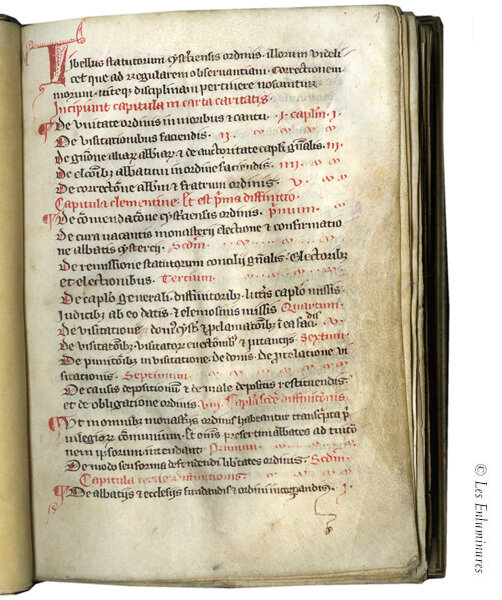 1
Libellus statutorum cysterciensis ordinis. illorum videli
cet que ad regularem observantiam. Correctionem
morum. viteq; disciplinam pertinere noscuntur
Incipiunt capitula in carta caritatis.
De unitate ordinis in moribus & cantu. I. caplm. I.
De visitationibus faciendis. II
De gn̄one aliar̄ abbiar̄ & de auctoritate capli gn̄alis. III.
De elc̄onib; abbatum in ordine faciendis. IIII.
De correctōne abbm & fratrum ordinis. V.
Capitula clementine. Et est p̄ma diffinitio.
De cōmendatōne cystciensis ordinis. p̄mum.
De cura vacantis monasterij electione & confirmatio
ne abbatis cystercij. Scdm̄.
De remissione statutorum concilij gn̄alis. Electorib;
et electionibus. Tercium.
De caplo generali. diffinitorib;. litt̄is caplo missis.
Iudicib; ab eo datis. & elemosinis missis Quartum.
De visitatione dom' cyst' & p̄clamatōnib; i ea faciēdis V.
De visitatōib; visitator̄ evectōnib; & pitanciis. Sextum.
De punitōnib; in visitatione. de donis. de p̄telatione vi
sitationis. Septimum.
De causis depositionum & de male depositis restituendis.
et de obligatione ordinis. VIII. Capl'a scd'e diffinitonis.
Ut in omnib; monast'ijs ordinis habeantur transcripta p̄
uilegior̄ cōmunium. Et om̄s presertim abbates ad tuitō
nem ipsorum intendant. Primum.
De modo seu forma defendendi lib̄tates ordinis. Scdm̄.
Capitula tercie diffinitionis.
De abbatijs & ecclesijs fundandis & ordini incorporandis. I.
© Les Enluminures